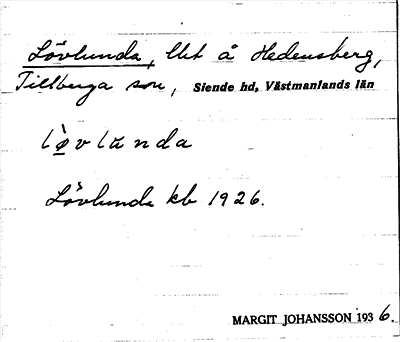 Lövlunda, lht å Hedensberg,
Tillberga sn, Siende hd, Västmanlands län
Lövlunda kb 1926.
MARGIT JOHANSSON 1936.